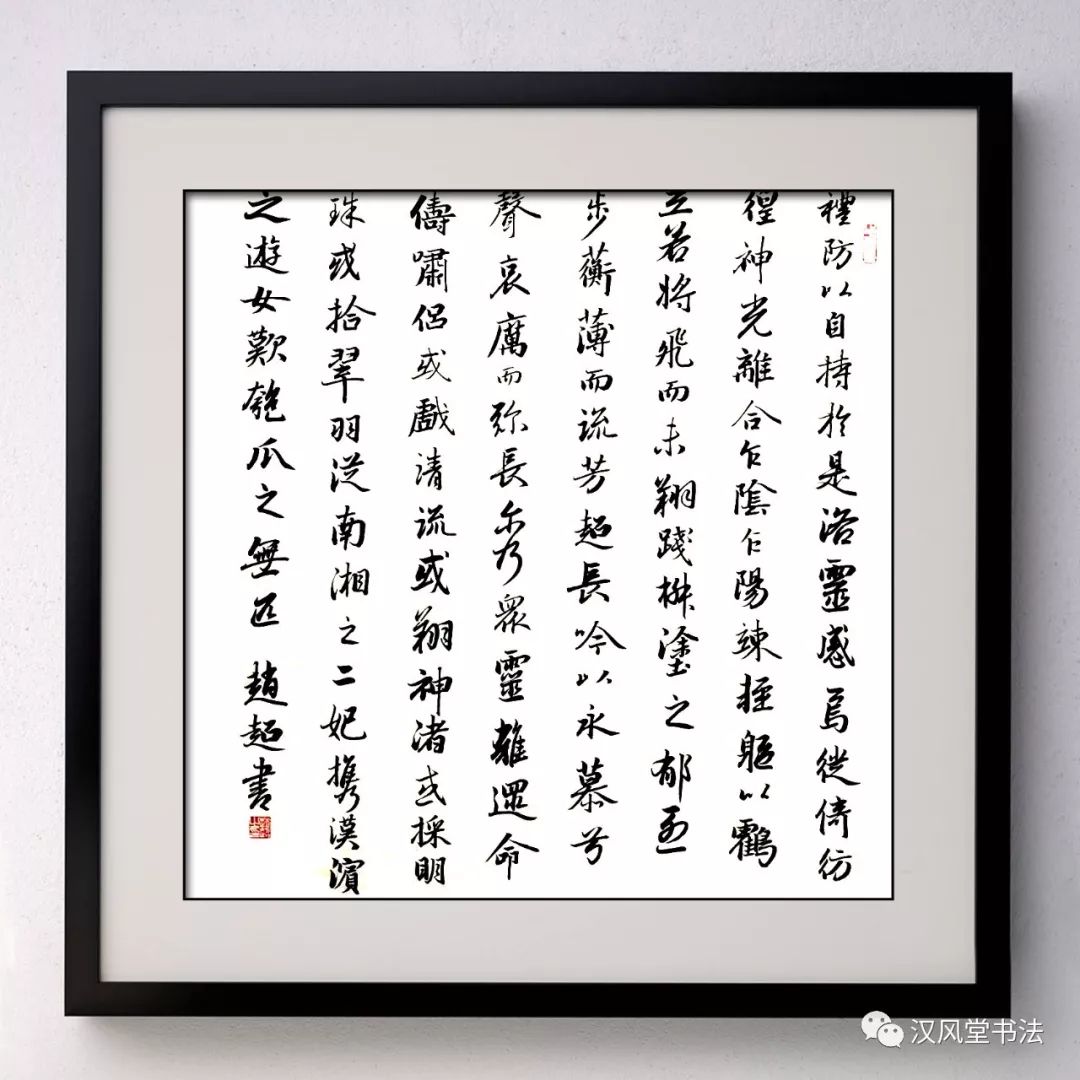 禮防以自持於是洛靈感焉從倚彷
徨神光離合乍陰乍陽竦輕軀以鶴
立若將飛而未翔踐椒塗之郁烈
步蘅薄而流芳超長吟以永慕兮
聲哀厲而弥長尔乃眾靈雜遝命
儔嘯侶或戲清流或翔神渚或採明
珠或拾翠羽從南湘之二妃携漢濱
之遊女歎匏瓜之無匹 趙超書
汉风堂书法